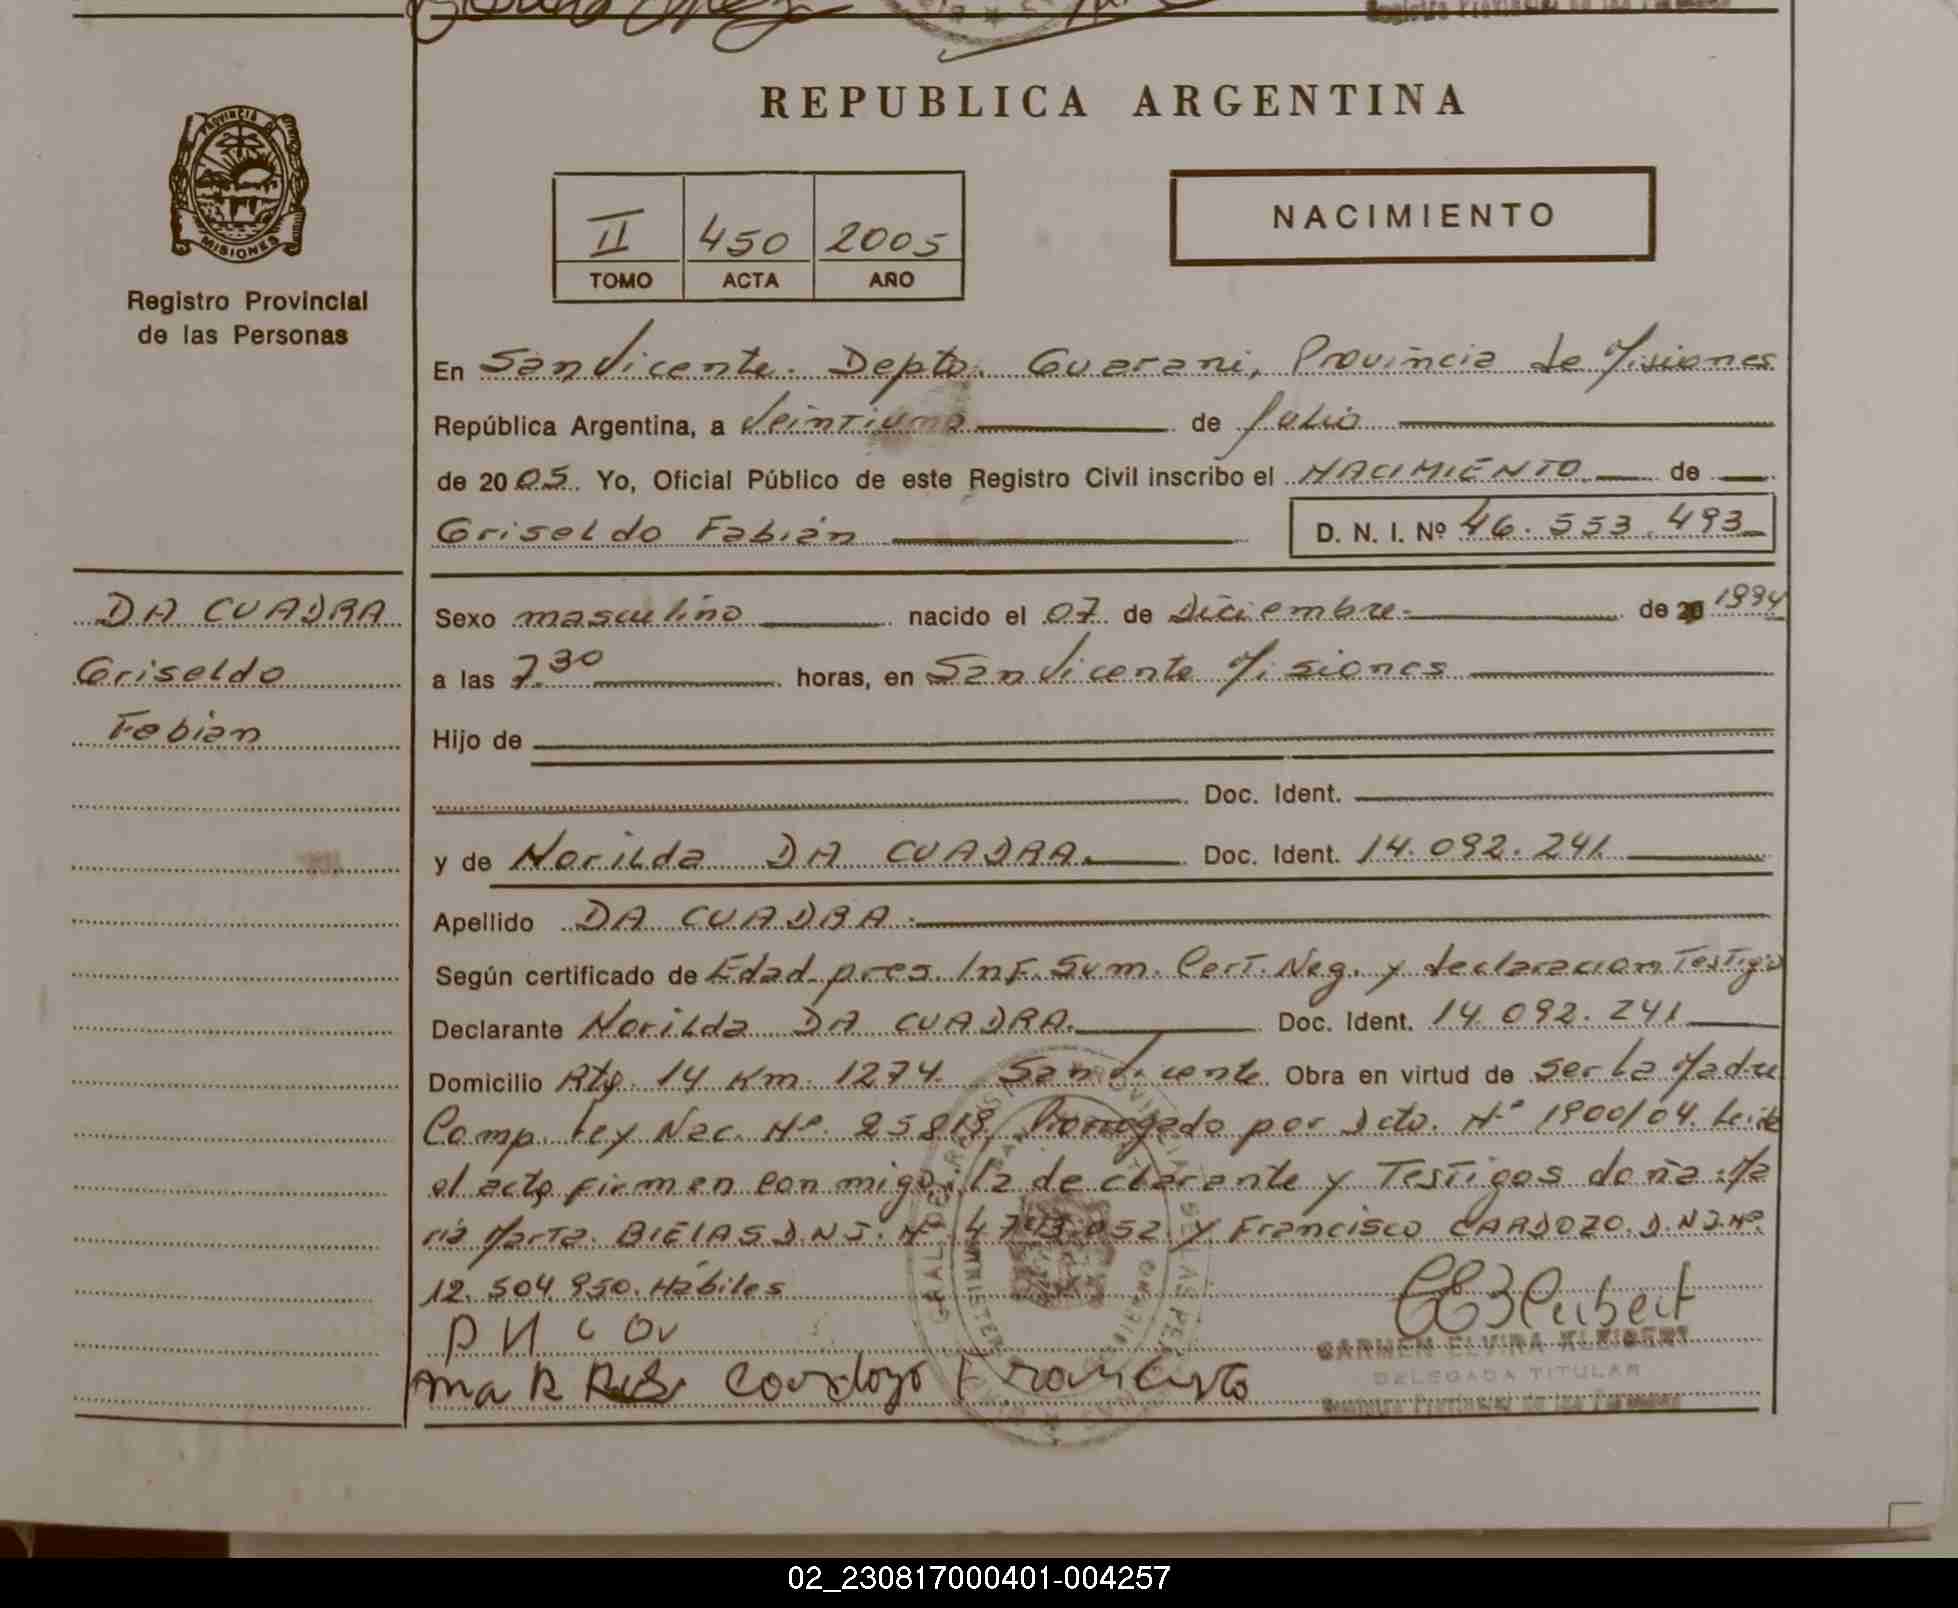 REPUBLICA ARGENTINA
PROVINCIA DE
MISIONES
Registro Provincial
de las Personas
II 450 2005
TOMO ACTA AÑO
NACIMIENTO
En San Vicente. Depto. Guarani, Provincia de Misiones
República Argentina, a Veintiuno de Julio
de 2005. Yo, Oficial Público de este Registro Civil inscribo el NACIMIENTO de
Griseldo Fabián D. N. I. Nº 46.553.493
DA CUADRA
Griseldo
Fabian
Sexo masculino nacido el 07 de Diciembre de 1994
a las 7.30 horas, en San Vicente Misiones
Hijo de
Doc. Ident.
y de Norilda DA CUADRA. Doc. Ident. 14.092.241
Apellido DA CUADRA.
Según certificado de Edad pres. Inf. Sum. Cert. Neg. y declaracion Testigo
Declarante Norilda DA CUADRA. Doc. Ident. 14.092.241
Domicilio Rta. 14 Km. 1274. San Vicente Obra en virtud de ser la Madre
Comp. Ley Nac. Nº. 25818, Prorrogado por Dcto. Nº 1900/04. Leida
el acta, firmen conmigo, la declarante y Testigos doña: Ma
ria Marta BIELAS D.N.I. Nº 4.793.052 y Francisco CARDOZO. D.N.I.Nº.
12.504.950. Hábiles
Cardozo Francisco
CARMEN ELVIRA KLEIBERT
DELEGADA TITULAR
Registro Provincial de las Personas
02_230817000401-004257